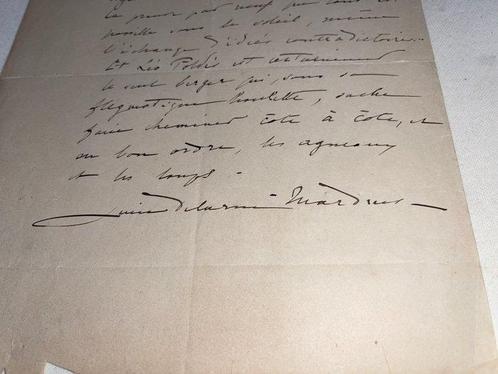 la preuve par neuf que tout est
possible sous le soleil, même
l'échange d'idées contradictoires.
Et Léo Poldès est certainement
le seul berger qui, sous sa
flegmatique houlette, sache
faire cheminer côte à côte, et
en bon ordre, les agneaux
et les loups.
Lucie Delarue-Mardrus